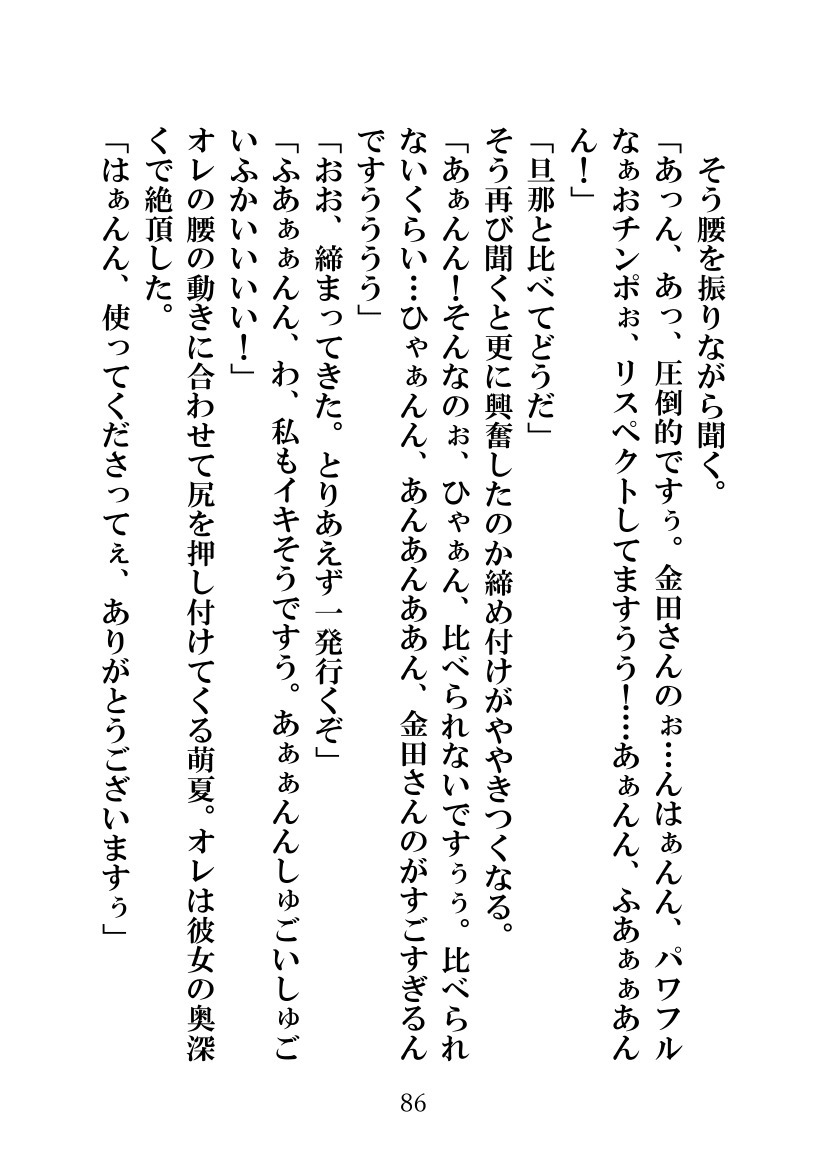 そう腰を振りながら聞く。
「あっん、あっ、圧倒的ですぅ。金田さんのぉ…んはぁんん、パワフル
なぁおチンポぉ、リスペクトしてますうう！…あぁんん、ふあぁぁあん
ん！」
「旦那と比べてどうだ」
そう再び聞くと更に興奮したのか締め付けがややきつくなる。
「あぁんん！そんなのぉ、ひゃぁん、比べられないですぅぅ。比べられ
ないくらい…ひゃぁんん、あんあんああん、金田さんのがすごすぎるん
ですうううう」
「おお、締まってきた。とりあえず一発行くぞ」
「ふあぁぁんん、わ、私もイキそうですう。あぁぁんんしゅごいしゅご
いふかいいいい！」
オレの腰の動きに合わせて尻を押し付けてくる萌夏。オレは彼女の奥深
くで絶頂した。
「はぁんん、使ってくださってぇ、ありがとうございますぅ」
86